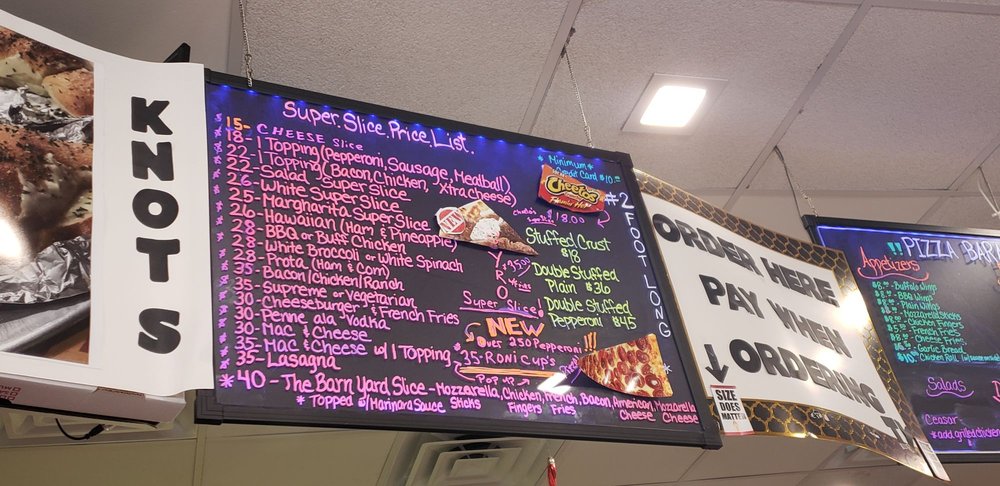 KNOTS
Super Slice Price List.
15- CHEESE Slice
18-1 Topping (Pepperoni, Sausage, Meatball)
22-1 Topping (Bacon, Chicken, Xtra Cheese)
22- Salad Super Slice
26- White Super Slice
25- Margharita Super Slice
26- Hawaiian (Ham & Pineapple)
28- BBQ or Buff Chicken
28- White Broccoli or White Spinach
28- Prota (Ham & Corn)
35- Bacon/Chicken/Ranch
35- Supreme or Vegetarian
30- Cheeseburger & French Fries
30- Penne ala Vodka
30- Mac & Cheese
35- Mac & Cheese w/1 Topping
35- Lasagna
*40 - The Barn Yard Slice - Mozzarella, Chicken, French, Bacon, American, Mozzarella
Sticks Fingers Fries Cheese Cheese
* Topped w/Marinara Sauce
* Minimum *
Credit Card $10.00
Cheetos
Flamin' Hot
$18.00
#2 FOOT LONG
GYRO
Super Slice!
Stuffed Crust
$18
Double Stuffed
Plain $36
Double Stuffed
Pepperoni $45
NEW
Over 250 Pepperoni!!!
25-RONI CUP'S
POP UP
ORDER HERE
PAY WHEN
ORDERING
SIZE
DOES
MATTER
!! PIZZA BAR
Appetizers
$8.00 - Buffalo Wings
$8.00 - BBQ Wings
$8.00 - Plain Wings
Mozzarella Sticks
Chicken Fingers
French Fries
Cheese Fries
Garlic Bread
Chicken Roll
Salads
Ceasar-
*add grilled chicken